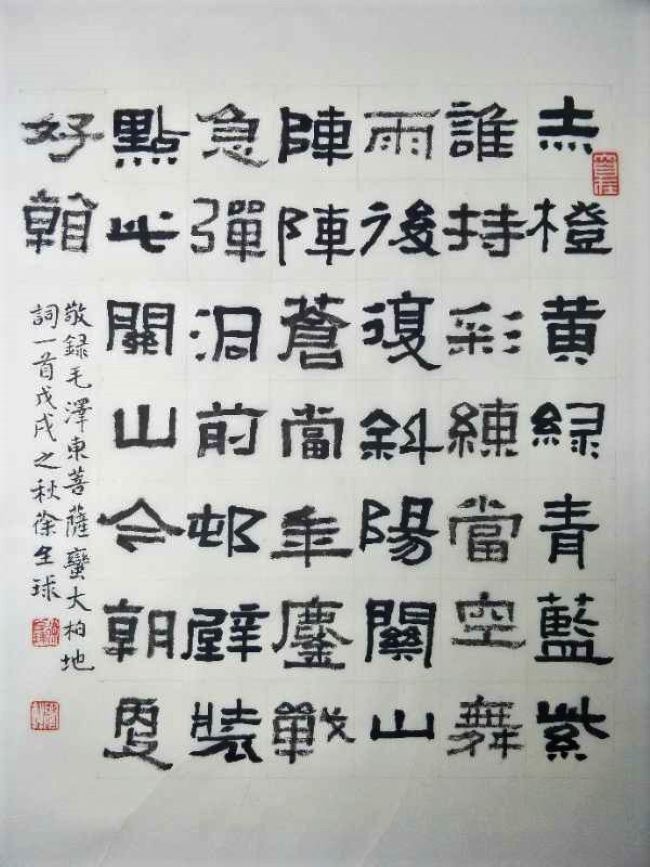 赤橙黄緑青藍紫
誰持彩練當空舞
雨後復斜陽關山
陣陣蒼當年鏖戰
急彈洞前邨壁裝
點此關山今朝更
好看
敬録毛澤東菩薩蠻大柏地
詞一首戊戌之秋徐全球